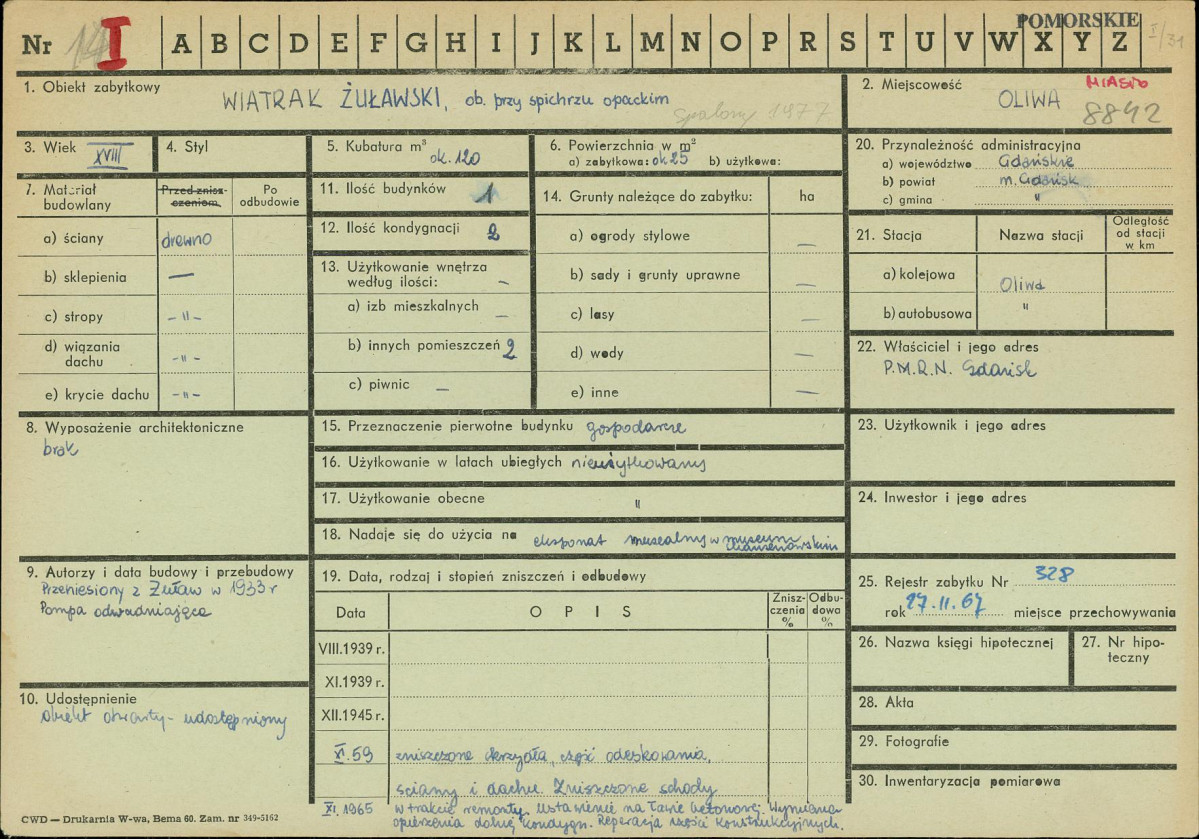 POMORSKIE
Nr 14 I A B C D E F G H I J K L M N O P R S T U V W X Y Z I/31
1. Obiekt zabytkowy
WIATRAK ŻUŁAWSKI, ob. przy spichrzu opackim
Spalony 1977
2. Miejscowość MIASTO
OLIWA 8842
3. Wiek XVIII
4. Styl
5. Kubatura m³ ok. 120
6. Powierzchnia w m²
a) zabytkowa: ok 25 b) użytkowa:
7. Materiał budowlany
Przed znisz-czeniem
Po odbudowie
a) ściany drewno
b) sklepienia —
c) stropy - " -
d) wiązania dachu - " -
e) krycie dachu - " -
8. Wyposażenie architektoniczne
brak
9. Autorzy i data budowy i przebudowy
Przeniesiony z Żuław w 1933 r
Pompa odwadniająca
10. Udostępnienie
obiekt otwarty - udostępniony
CWD — Drukarnia W-wa, Bema 60. Zam. nr 349-5162
11. Ilość budynków 1
12. Ilość kondygnacji 2
13. Użytkowanie wnętrza
według ilości: —
a) izb mieszkalnych —
b) innych pomieszczeń 2
c) piwnic —
14. Grunty należące do zabytku: ha
a) ogrody stylowe —
b) sady i grunty uprawne —
c) lasy —
d) wody —
e) inne —
15. Przeznaczenie pierwotne budynku gospodarcze
16. Użytkowanie w latach ubiegłych nieużytkowany
17. Użytkowanie obecne "
18. Nadaje się do użycia na eksponat muzealny w muzeum
19. Data, rodzaj i stopień zniszczeń i odbudowy
Data
O P I S
Znisz-czenia %
Odbu-dowa %
VIII.1939 r.
XI.1939 r.
XII.1945 r.
XI.59 zniszczone skrzydła, część odeskowania,
ściany i dachu. Zniszczone schody
XI. 1965 w trakcie remontu. Ustawienie na ławie betonowej. Wymiana
opierzenia dolnej kondygn. Reperacja części konstrukcyjnych.
20. Przynależność administracyjna
a) województwo Gdańskie
b) powiat m. Gdańsk
c) gmina "
21. Stacja
Nazwa stacji
Odległość od stacji w km
a) kolejowa Oliwa
b) autobusowa "
22. Właściciel i jego adres
P.M.R.N. Gdańsk
23. Użytkownik i jego adres
24. Inwestor i jego adres
25. Rejestr zabytku Nr 328
rok 27.11.67 miejsce przechowywania
26. Nazwa księgi hipotecznej
27. Nr hipo-
teczny
28. Akta
29. Fotografie
30. Inwentaryzacja pomiarowa